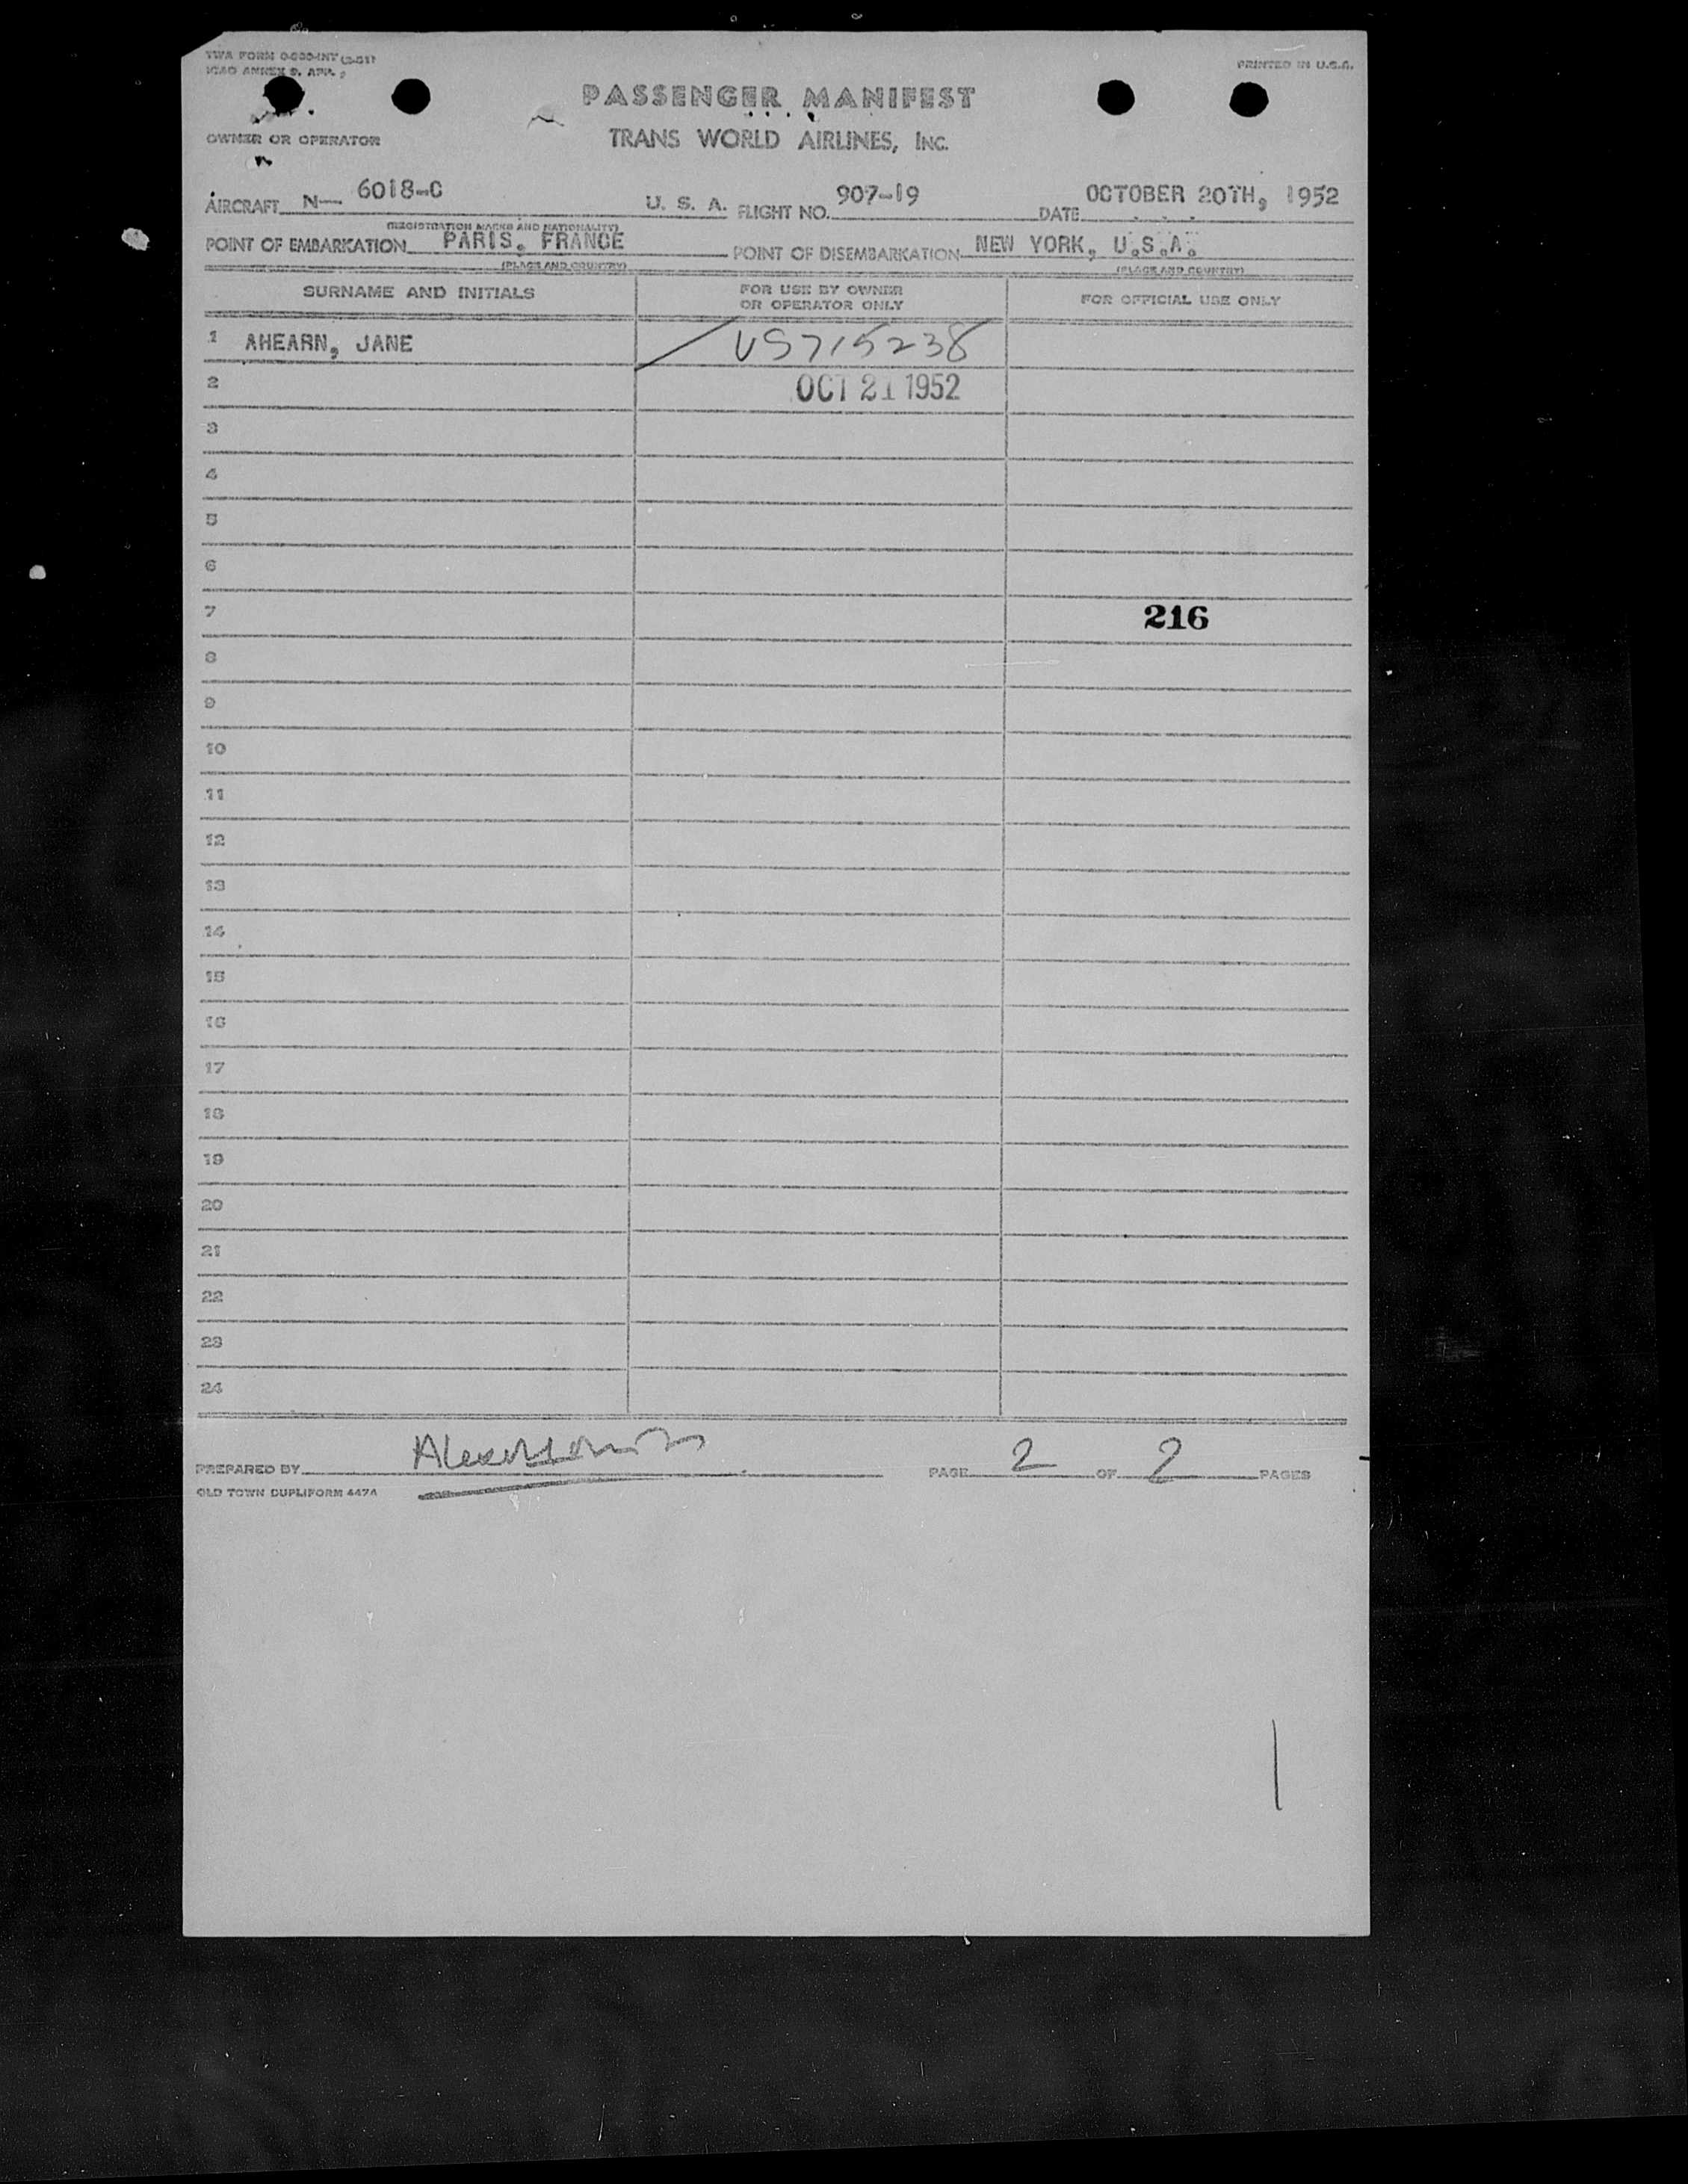 PRINTED IN U.S.A.
PASSENGER MANIFEST
OWNER OR OPERATOR
TRANS WORLD AIRLINES, INC.
AIRCRAFT N— 6018-C U. S. A. FLIGHT NO. 907-19 DATE OCTOBER 20TH, 1952
(REGISTRATION MARKS AND NATIONALITY)
POINT OF EMBARKATION PARIS, FRANCE POINT OF DISEMBARKATION NEW YORK, U.S.A.
(PLACE AND COUNTRY) (PLACE AND COUNTRY)
SURNAME AND INITIALS FOR USE BY OWNER OR OPERATOR ONLY FOR OFFICIAL USE ONLY
1 AHEARN, JANE US715238
2 OCT 21 1952
3
4
5
6
7 216
8
9
10
11
12
13
14
15
16
17
18
19
20
21
22
23
24
PREPARED BY PAGE 2 OF 2 PAGES
OLD TOWN DUPLIFORM 4474